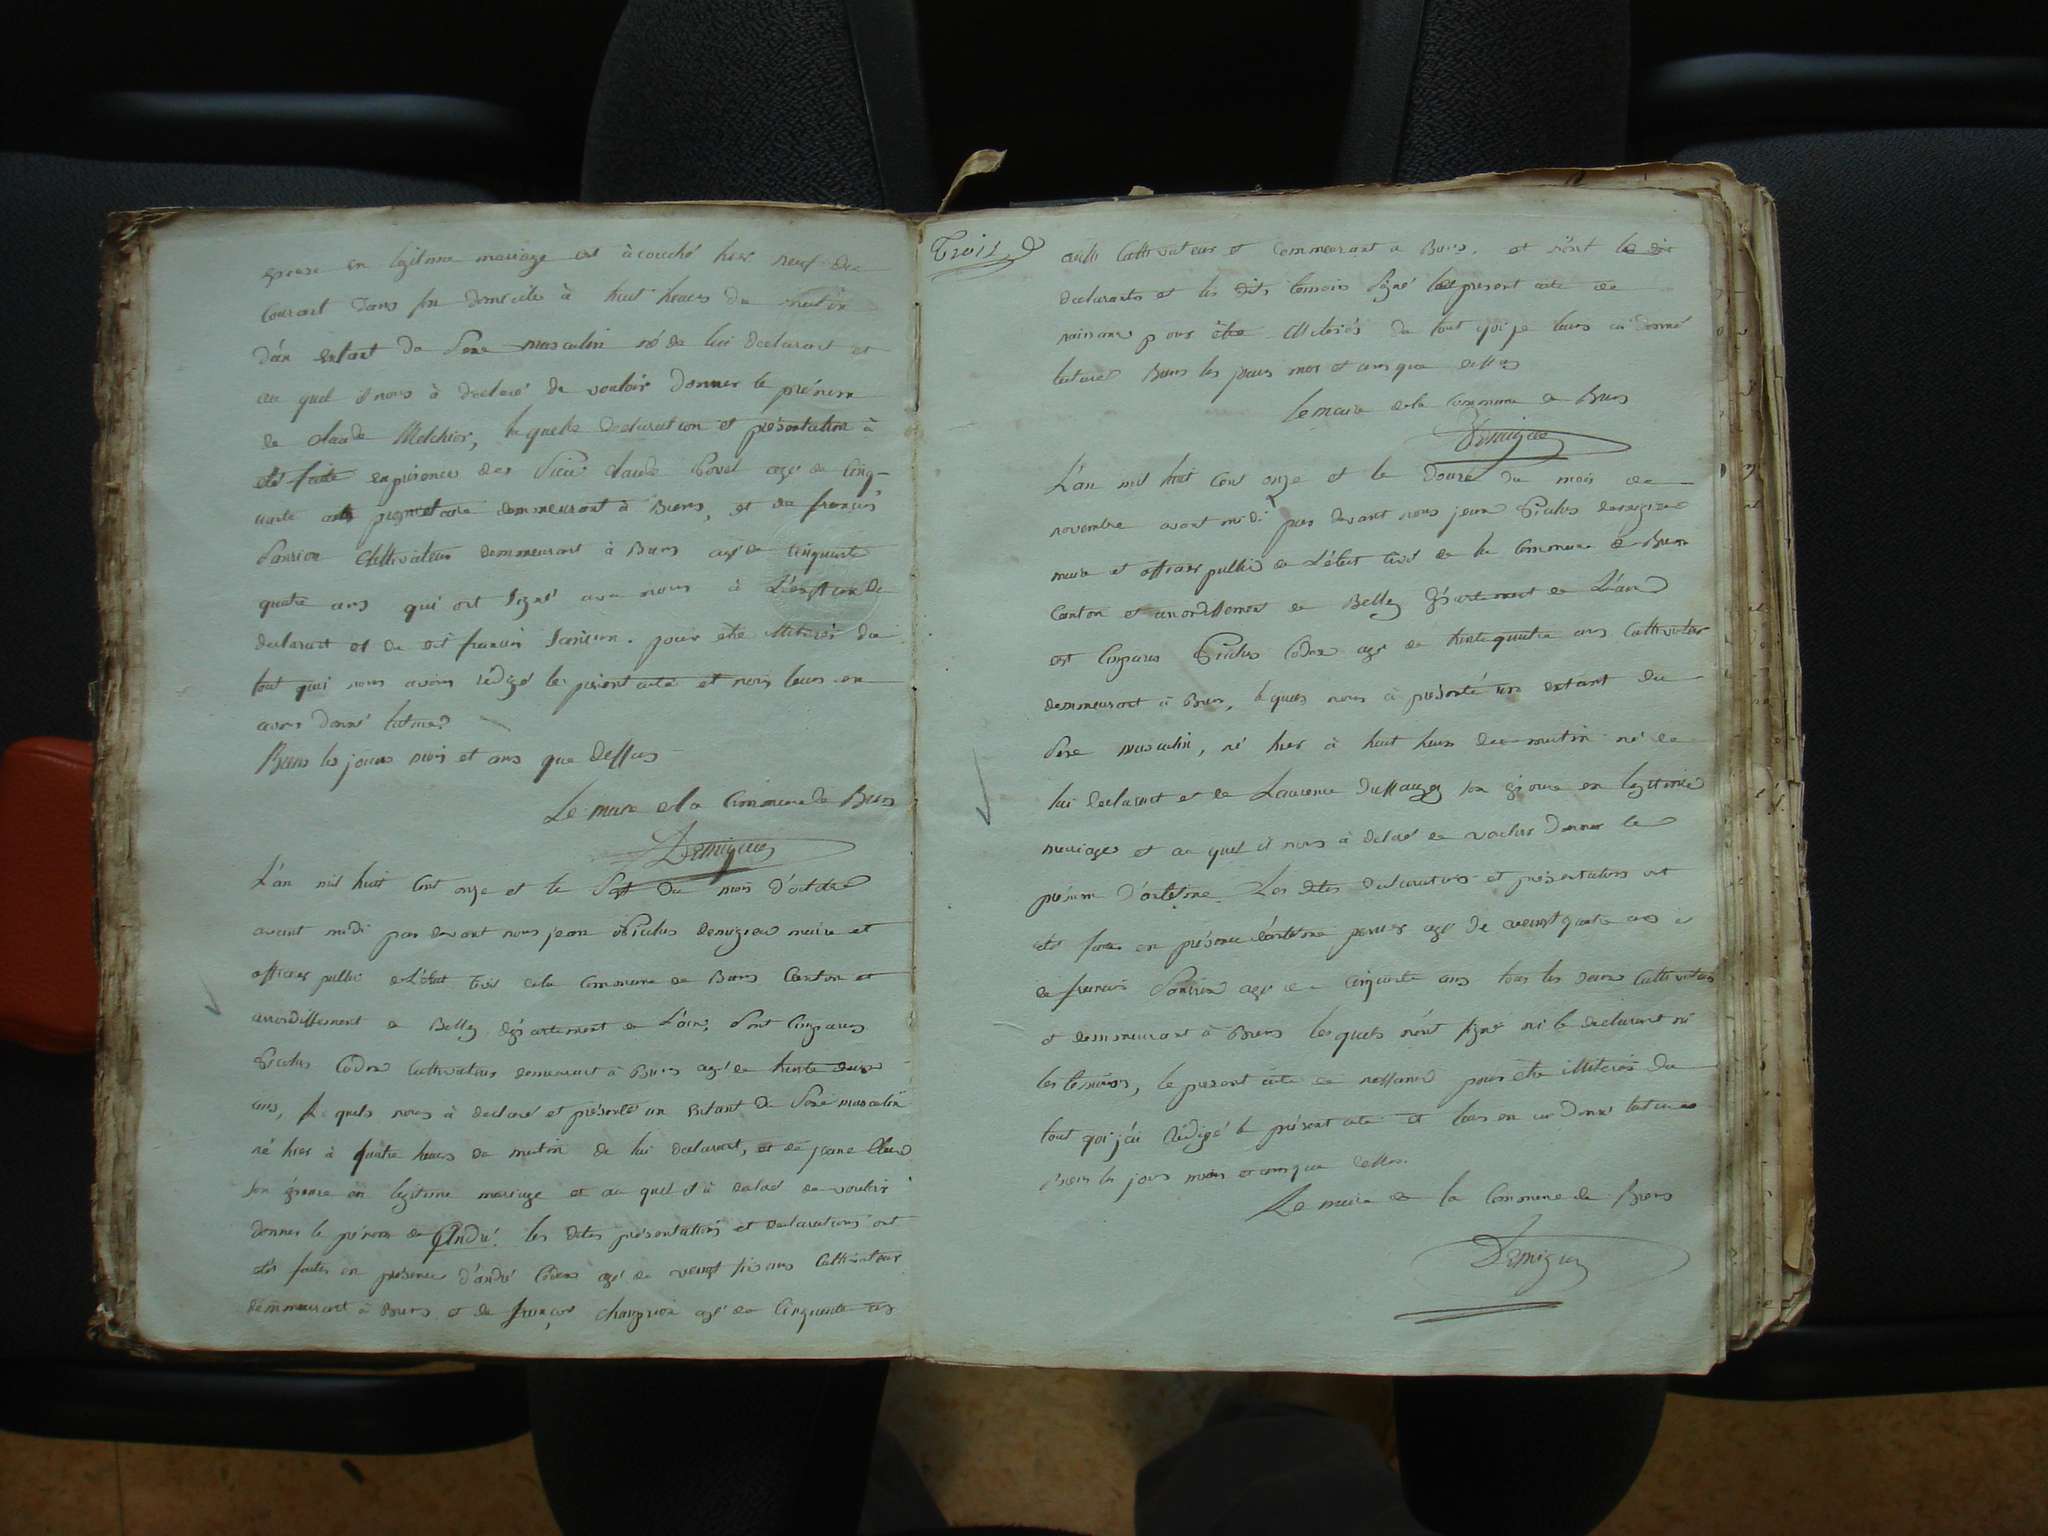 epouse en legitime mariage est à couché hier neuf du
Courant dans son domicile à huit heures du matin
d'un enfant du Sexe masculin né de lui declarant et
au quel il nous à declaré de vouloir donner le prénom
de claude Melchior, la quelle declaration et présentation à
été faite en présence des Sieur claude agé de Cinq-
uante ans propriétaire demmeurant à Brens, et de francois
Cultivateur demmeurant à Brens agé de cinquante
quatre ans qui ont signé avec nous à L'éxeption du
declarant et du dit francois . pour être du
tout qui nous avons rédigé le présent acte et nous leurs en
avons donné lecture
Brens les jours mois et ans que dessus
Le maire de la Commune de Brens
Demigieu
L'an mil huit cent onze et le Sept du mois d'octobre
avant midi par devant nous jean demigieu maire et
officier public de L'état Civil de la Commune de Brens Canton et
arrondissement de Belley département de L'ain, Sont Comparus
Codex Cultivateur demeurant à Brens agé de trente deux
ans, le quels nous à declaré et présenté un Enfant du Sexe masculin
né hier à quatre heures du matin de lui declarant, et de jeane
Son épouse en legitime mariage et au quel il à declaré de vouloir
donner le prénom de André. les dites présentations et declarations ont
été faites en présence d'andré Codex agé de veingt trois ans Cultivateur
demmeurant à Brens et de françois agé de Cinquante ans
Trois
aussi Cultivateur et demmeurant a Brens, et n'ont le dit
declarants et les dits temoins Signé le present acte de
naissance pour être du tout qui je leurs ai donné
lecture Brens les jours mois et ans que dessus
le maire de la Commune de Brens
Demigieu
L'an mil huit Cent onze et le Douze du mois de
novembre avant midi par devant nous jean demigieu
maire et officier public de L'état Civil de la Commune de Brens
Canton et arrondissement de Belley Département de L'ain
est Comparus Codex agé de trente quatre ans Cultivateur
demmeurant à Brens, le quel nous à présenté un enfant du
Sexe masculin, né hier à huit heures du matin né de
lui declarant et de Laurence son épouse en legitime
mariage et au quel il nous à declaré de vouloir donner le
prénom d'antoine. Les dites declarations et présentations ont
été faites en présence d'antoine agé de veingt quatre ans et
de francois agé de Cinquante ans tous les deux Cultivateurs
et demmeurant à Brens les quels n'ont signé ni le declarant ni
les temoins, le present acte de naissance pour être du
tout qui j'ai rédigé le présent acte et leurs en ai donné lecture
Brens les jours mois et ans que dessus.
Le maire de la Commune de Brens
Demigieu